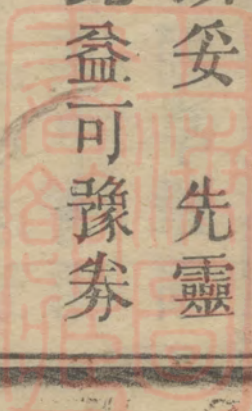 妥　先靈
益可豫券